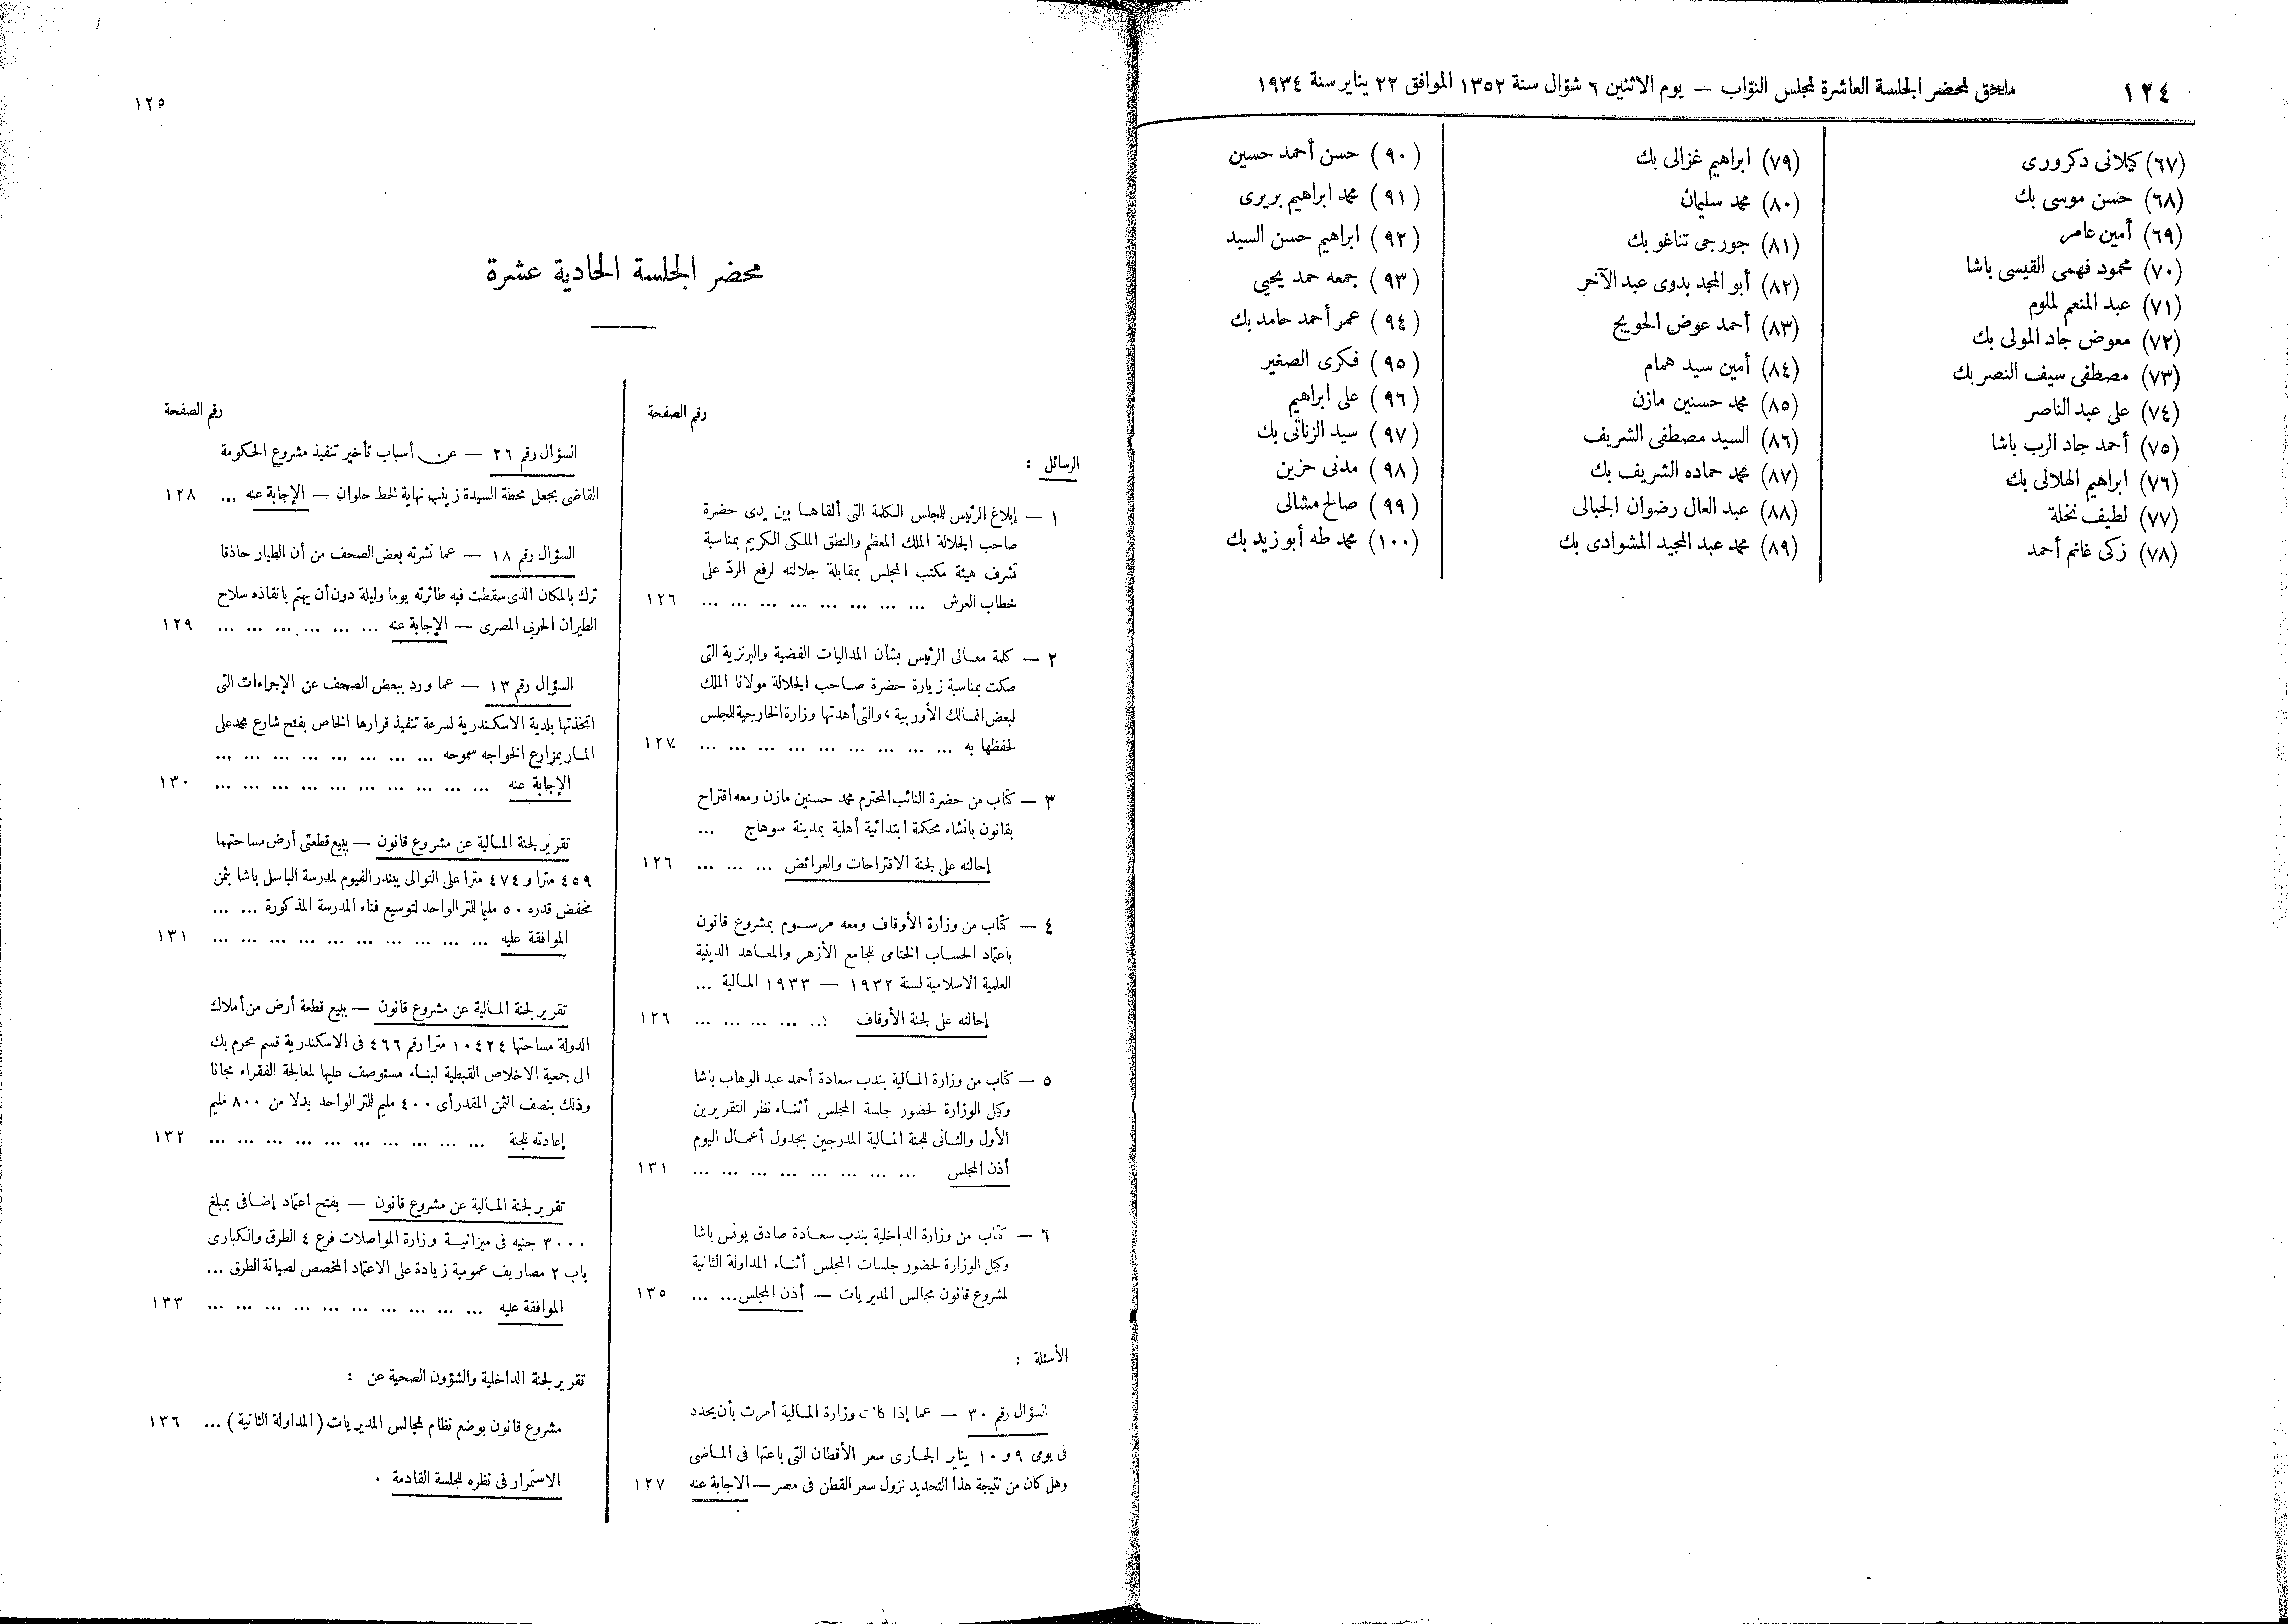 ١٢٤
ملحق لمحضر الجلسة العاشرة لمجلس النوّاب — يوم الاثنين ٦ شوّال سنة ١٣٥٢ الموافق ٢٢ يناير سنة ١٩٣٤
(٦٧) كيلانى دكرورى
(٦٨) حسن موسى بك
(٦٩) أمين عامر
(٧٠) محمود فهمى القيسى باشا
(٧١) عبد المنعم لملوم
(٧٢) معوض جاد المولى بك
(٧٣) مصطفى سيف النصر بك
(٧٤) على عبد الناصر
(٧٥) أحمد جاد الرب باشا
(٧٦) ابراهيم الهلالى بك
(٧٧) لطيف نخلة
(٧٨) زكى غانم أحمد
(٧٩) ابراهيم غزالى بك
(٨٠) محمد سليمان
(٨١) جورجى تناغو بك
(٨٢) أبو المجد بدوى عبد الآخر
(٨٣) أحمد عوض الحويج
(٨٤) أمين سيد همام
(٨٥) محمد حسنين مازن
(٨٦) السيد مصطفى الشريف
(٨٧) محمد حماده الشريف بك
(٨٨) عبد العال رضوان الجبالى
(٨٩) محمد عبد المجيد المشوادى بك
(٩٠) حسن أحمد حسين
(٩١) محمد ابراهيم بريرى
(٩٢) ابراهيم حسن السيد
(٩٣) جمعه حمد يحيى
(٩٤) عمر أحمد حامد بك
(٩٥) فكرى الصغير
(٩٦) على ابراهيم
(٩٧) سيد الزناتى بك
(٩٨) مدنى حزين
(٩٩) صالح مشالى
(١٠٠) محمد طه أبو زيد بك
١٢٥
محضر الجلسة الحادية عشرة
رقم الصفحة
الرسائل :
١ — إبلاغ الرئيس للمجلس الكلمة التى ألقاها بين يدى حضرة
صاحب الجلالة الملك المعظم والنطق الملكى الكريم بمناسبة
تشرف هيئة مكتب المجلس بمقابلة جلالته لرفع الردّ على
خطاب العرش ... ... ... ... ... ... ... ... ١٢٦
٢ — كلمة معالى الرئيس بشأن المداليات الفضية والبرنزية التى
صكت بمناسبة زيارة حضرة صاحب الجلالة مولانا الملك
لبعض الممالك الأوربية ، والتى أهدتها وزارة الخارجية للمجلس
لحفظها به ... ... ... ... ... ... ... ... ... ١٢٧
٣ — كتاب من حضرة النائب المحترم محمد حسنين مازن ومعه اقتراح
بقانون بانشاء محكمة ابتدائية أهلية بمدينة سوهاج ...
إحالته على لجنة الاقتراحات والعرائض ... ... ... ١٢٦
٤ — كتاب من وزارة الأوقاف ومعه مرسوم بمشروع قانون
باعتماد الحساب الختامى للجامع الأزهر والمعاهد الدينية
العلمية الاسلامية لسنة ١٩٣٢ — ١٩٣٣ المالية ...
إحالته على لجنة الأوقاف ... ... ... ... ... ١٢٦
٥ — كتاب من وزارة المالية بندب سعادة أحمد عبد الوهاب باشا
وكيل الوزارة لحضور جلسة المجلس أثناء نظر التقريرين
الأول والثانى للجنة المالية المدرجين بجدول أعمال اليوم
أذن المجلس ... ... ... ... ... ... ... ... ١٣١
٦ — كتاب من وزارة الداخلية بندب سعادة صادق يونس باشا
وكيل الوزارة لحضور جلسات المجلس أثناء المداولة الثانية
لمشروع قانون مجالس المديريات — أذن المجلس ... ... ١٣٥
الأسئلة :
السؤال رقم ٣٠ — عما إذا كانت وزارة المالية أمرت بأن يحدد
فى يومى ٩ و ١٠ يناير الجارى سعر الأقطان التى باعتها فى الماضى
وهل كان من نتيجة هذا التحديد نزول سعر القطن فى مصر — الاجابة عنه ١٢٧
رقم الصفحة
السؤال رقم ٢٦ — عن أسباب تأخير تنفيذ مشروع الحكومة
القاضى بجعل محطة السيدة زينب نهاية لخط حلوان — الإجابة عنه ... ١٢٨
السؤال رقم ١٨ — عما نشرته بعض الصحف من أن الطيار حاذقا
ترك بالمكان الذى سقطت فيه طائرته يوما وليلة دون أن يهتم بانقاذه سلاح
الطيران الحربى المصرى — الإجابة عنه ... ... ... ... ... ... ١٢٩
السؤال رقم ١٣ — عما ورد ببعض الصحف عن الإجراءات التى
اتخذتها بلدية الاسكندرية لسرعة تنفيذ قرارها الخاص بفتح شارع محمد على
المار بمزارع الخواجه سموحه ... ... ... ... ... ... ... ...
الإجابة عنه ... ... ... ... ... ... ... ... ... ... ١٣٠
تقرير لجنة المالية عن مشروع قانون — ببيع قطعتى أرض مساحتهما
٤٥٩ مترا و ٤٧٤ مترا على التوالى ببندر الفيوم لمدرسة الباسل باشا بثمن
مخفض قدره ٥٠ مليما للمتر الواحد لتوسيع فناء المدرسة المذكورة ... ...
الموافقة عليه ... ... ... ... ... ... ... ... ... ... ١٣١
تقرير لجنة المالية عن مشروع قانون — ببيع قطعة أرض من أملاك
الدولة مساحتها ١٠٤٢٤ مترا رقم ٤٦٦ فى الاسكندرية قسم محرم بك
الى جمعية الاخلاص القبطية لبناء مستوصف عليها لمعالجة الفقراء مجانا
وذلك بنصف الثمن المقدر أى ٤٠٠ مليم للمتر الواحد بدلا من ٨٠٠ مليم
إعادته للجنة ... ... ... ... ... ... ... ... ... ... ١٣٢
تقرير لجنة المالية عن مشروع قانون — بفتح اعتماد إضافى بمبلغ
٣٠٠٠ جنيه فى ميزانية وزارة المواصلات فرع ٤ الطرق والكبارى
باب ٢ مصاريف عمومية زيادة على الاعتماد المخصص لصيانة الطرق ...
الموافقة عليه ... ... ... ... ... ... ... ... ... ... ١٣٣
تقرير لجنة الداخلية والشؤون الصحية عن :
مشروع قانون بوضع نظام لمجالس المديريات (المداولة الثانية) ... ١٣٦
الاستمرار فى نظره للجلسة القادمة .